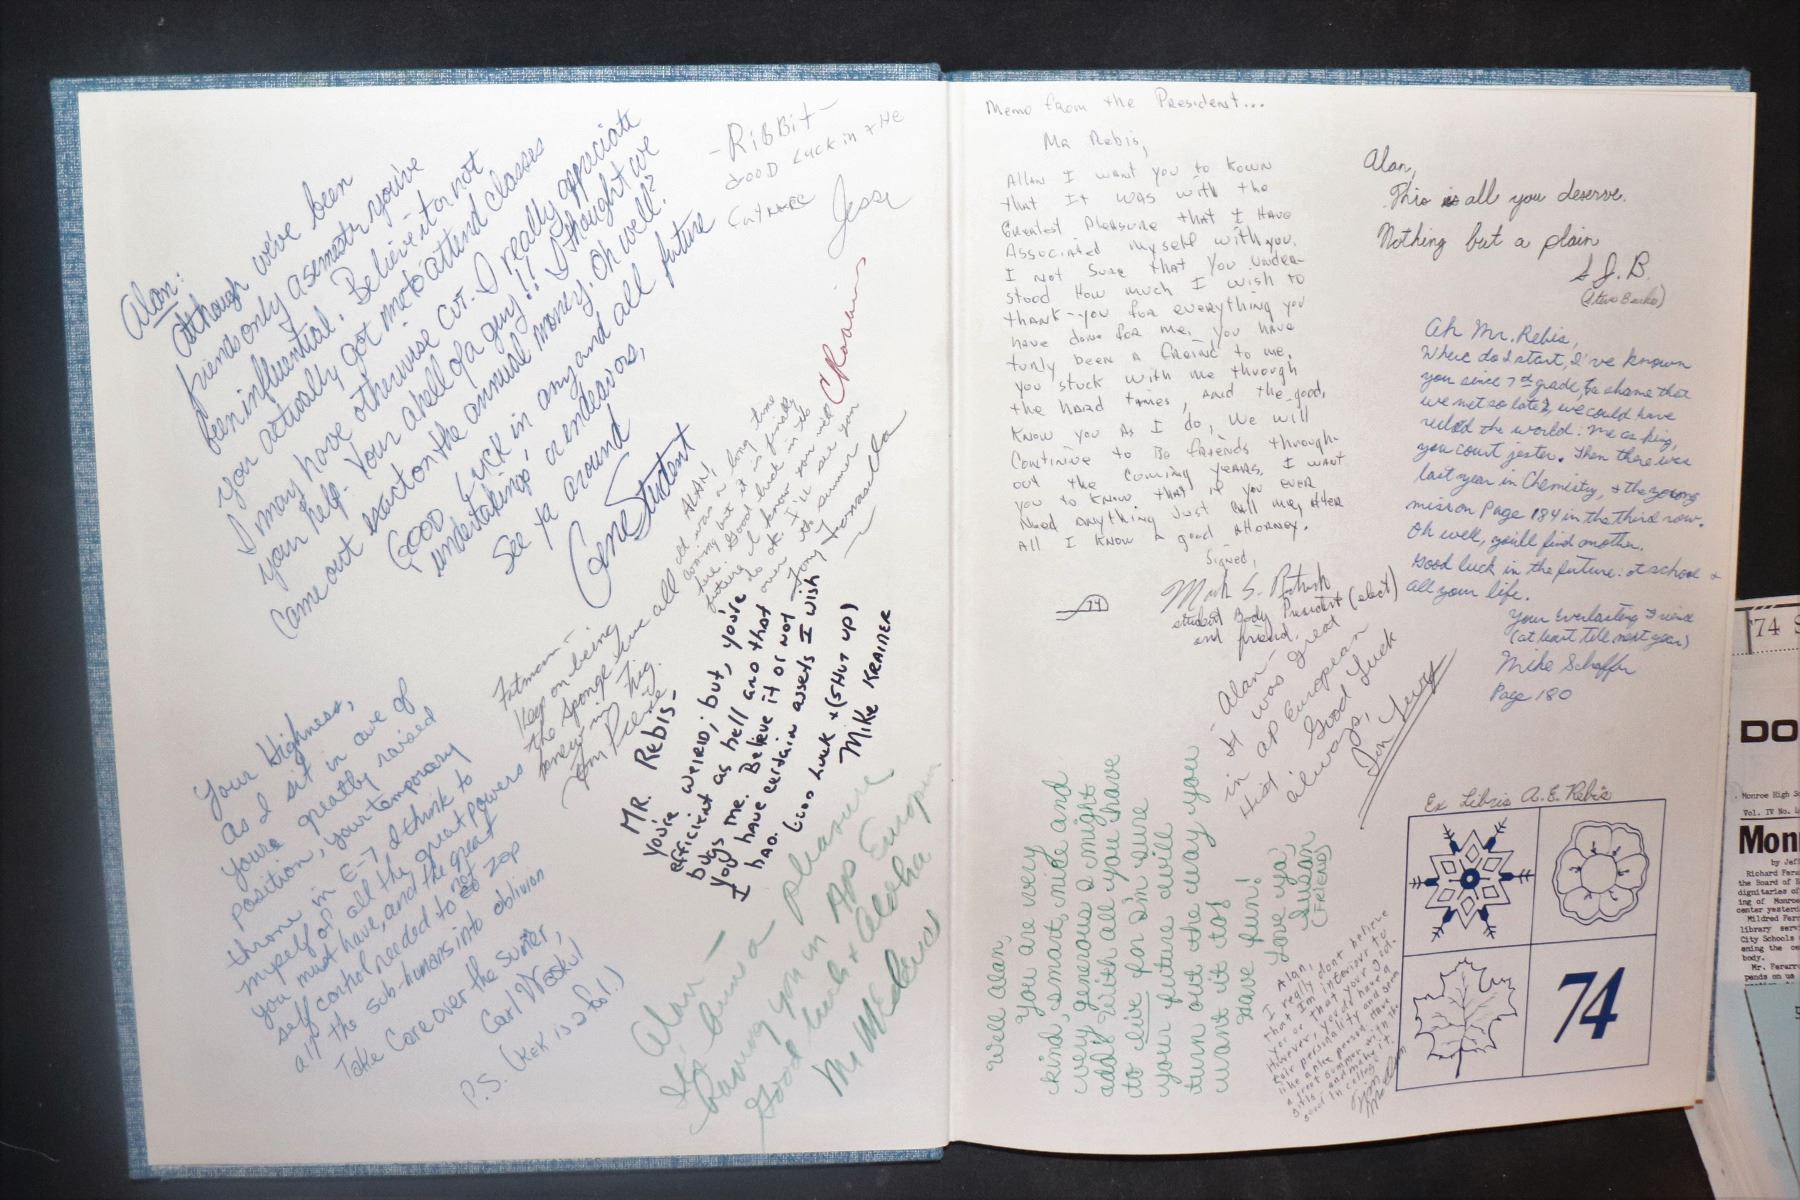 Alan:
Although we've been
friends only a semester you've
been influential. Believe it or not
you actually got me to attend classes
I may have otherwise cut. I really appreciate
your help. Your a hell of a guy!! I thought we
came out exact on the annual money. Oh well?
GOOD Luck in any and all future
undertakings, or endeavors,
See ya around
Gene Student
-RiBBit-
GooD Luck in tHe
Jesse
ALAN,
it was a long time
coming but it is finally
here. Good luck in the
future I know you will
do ok. I'll see you
over the summer
Tony
Fatman-
Keep on being
the sponge we all
knew
Tom
MR. Rebis-
you're weirid; but, you're
efficient as hell and that
bugs me. Believe it or not
you have certain assets I wish
I had. Good Luck & (SHUT UP)
Mike KRAIMER
Your Highness,
As I sit in awe of
youre greatly raised
position, your temporary
throne in E-7, I think to
myself of all the great powers
you must have, and the great
self control needed to not zap
all the sub-humans into oblivion
Take Care over the summer,
Carl
P.S. (KeK is a fool.)
Alan -
It's been a pleasure
having you in AP European
Good luck & Aloha
Memo from the President...
Mr Rebis,
Allan I want you to kown
that It was with the
Greatest Pleasure that I Have
Associated myself with you.
I not Sure that You under-
stood How much I wish to
thank-you for everything you
have done for me, You have
turly been a fraind to me,
you stuck with me through
the hard tames, and the good,
Know you as I do, we will
Continue to Be friends through-
out the coming years, I want
you to know that if you ever
Need anything Just call me, After
All I know a good Attorney.
Signed,
Mark S.
student Body President (elect)
and friend.
74
Alan,
This is all you deserve.
Nothing but a plain
S.J.B.
(Steve Banks)
Ah Mr. Rebis,
Where do I start, I've known
you since 7th grade, a shame that
we met so late, we could have
ruled the world: me as king,
you court jester. Then there was
last year in Chemistry, & the young
miss on Page 184 in the third row.
Oh well, you'll find another.
Good luck in the future: at school &
all your life.
Your Everlasting Friend
(at least tell next year)
Mike Schaffer
Page 180
- Alan -
It was great
in AP European
Hist Good Luck
always,
Well Alan,
You are very
kind, smart, nice and
very generous & might
add! With all you have
to give for I'm sure
your future will
turn out the way you
want it to!
Have fun!
Love ya,
Susan
(FRIENDS)
Alan,
I really don't believe
that I'm inferior to
you or that your God.
However, you do have a
fair personality and seem
like a nice person. Have
a great summer with the
girls and make it.
good in college
Ex Libris A.E. Rebis
74
'74 S
DO
Monroe High Sc
Vol. IV No.
Mon
by Jef
Richard Fera
the Board of
dignitaries of
ing of Monroe
center yesterd
Mildred Fer
library serv
City Schools
ening the ce
body.
Mr. Ferarro
pends on us